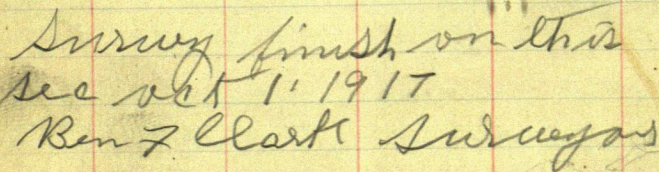 Survey finish on this
sec oct 1' 1917
Ben F Clark Surveyor